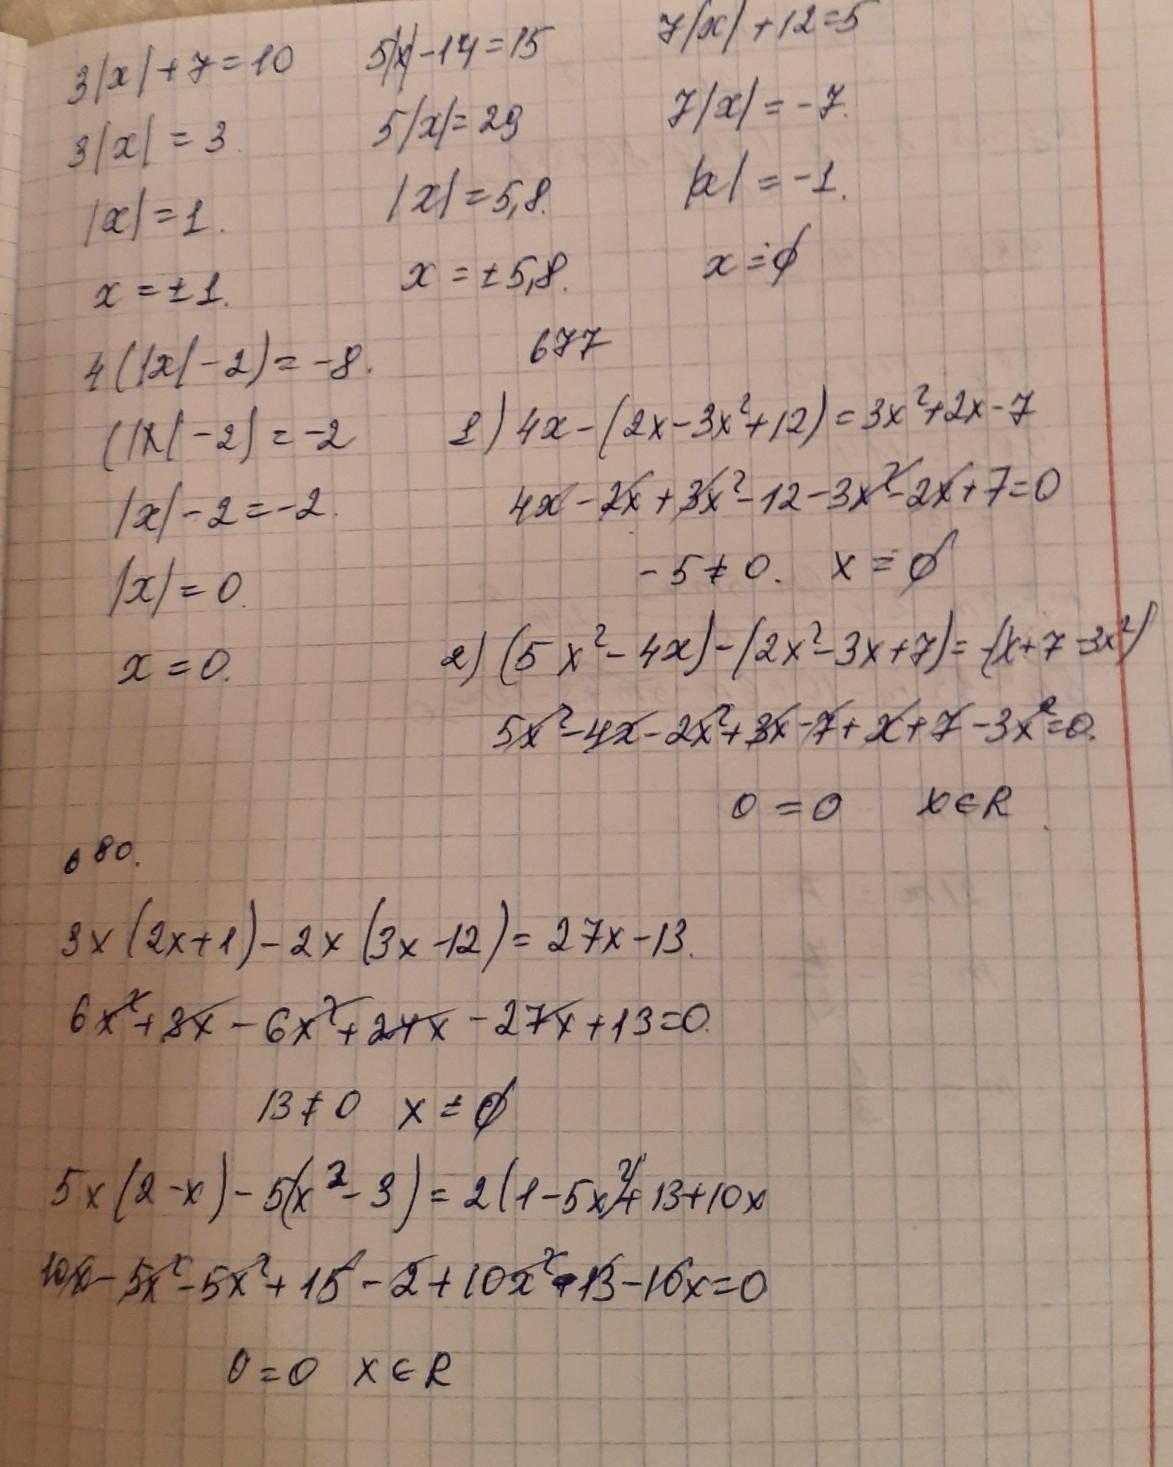 3|x|+7=10
3|x|=3.
|x|=1.
x=±1.
5|x|-14=15
5|x|=29
|x|=5,8.
x=±5,8.
7|x|+12=5
7|x|=-7.
|x|=-1.
x=∅
4(|x|-2)=-8.
(|x|-2)=-2
|x|-2=-2.
|x|=0.
x=0.
677
1) 4x-(2x-3x²+12)=3x²+2x-7
4x-2x+3x²-12-3x²-2x+7=0
-5≠0. x=∅
2) (5x²-4x)-(2x²-3x+7)=-(x+7-3x²)
5x²-4x-2x²+3x-7+x+7-3x²=0.
0=0 x∈R
680.
3x(2x+1)-2x(3x-12)=27x-13.
6x²+3x-6x²+24x-27x+13=0.
13≠0 x=∅
5x(2-x)-5(x²-3)=2(1-5x²)+13+10x
10x-5x²-5x²+15-2+10x²-13-10x=0
0=0 x∈R